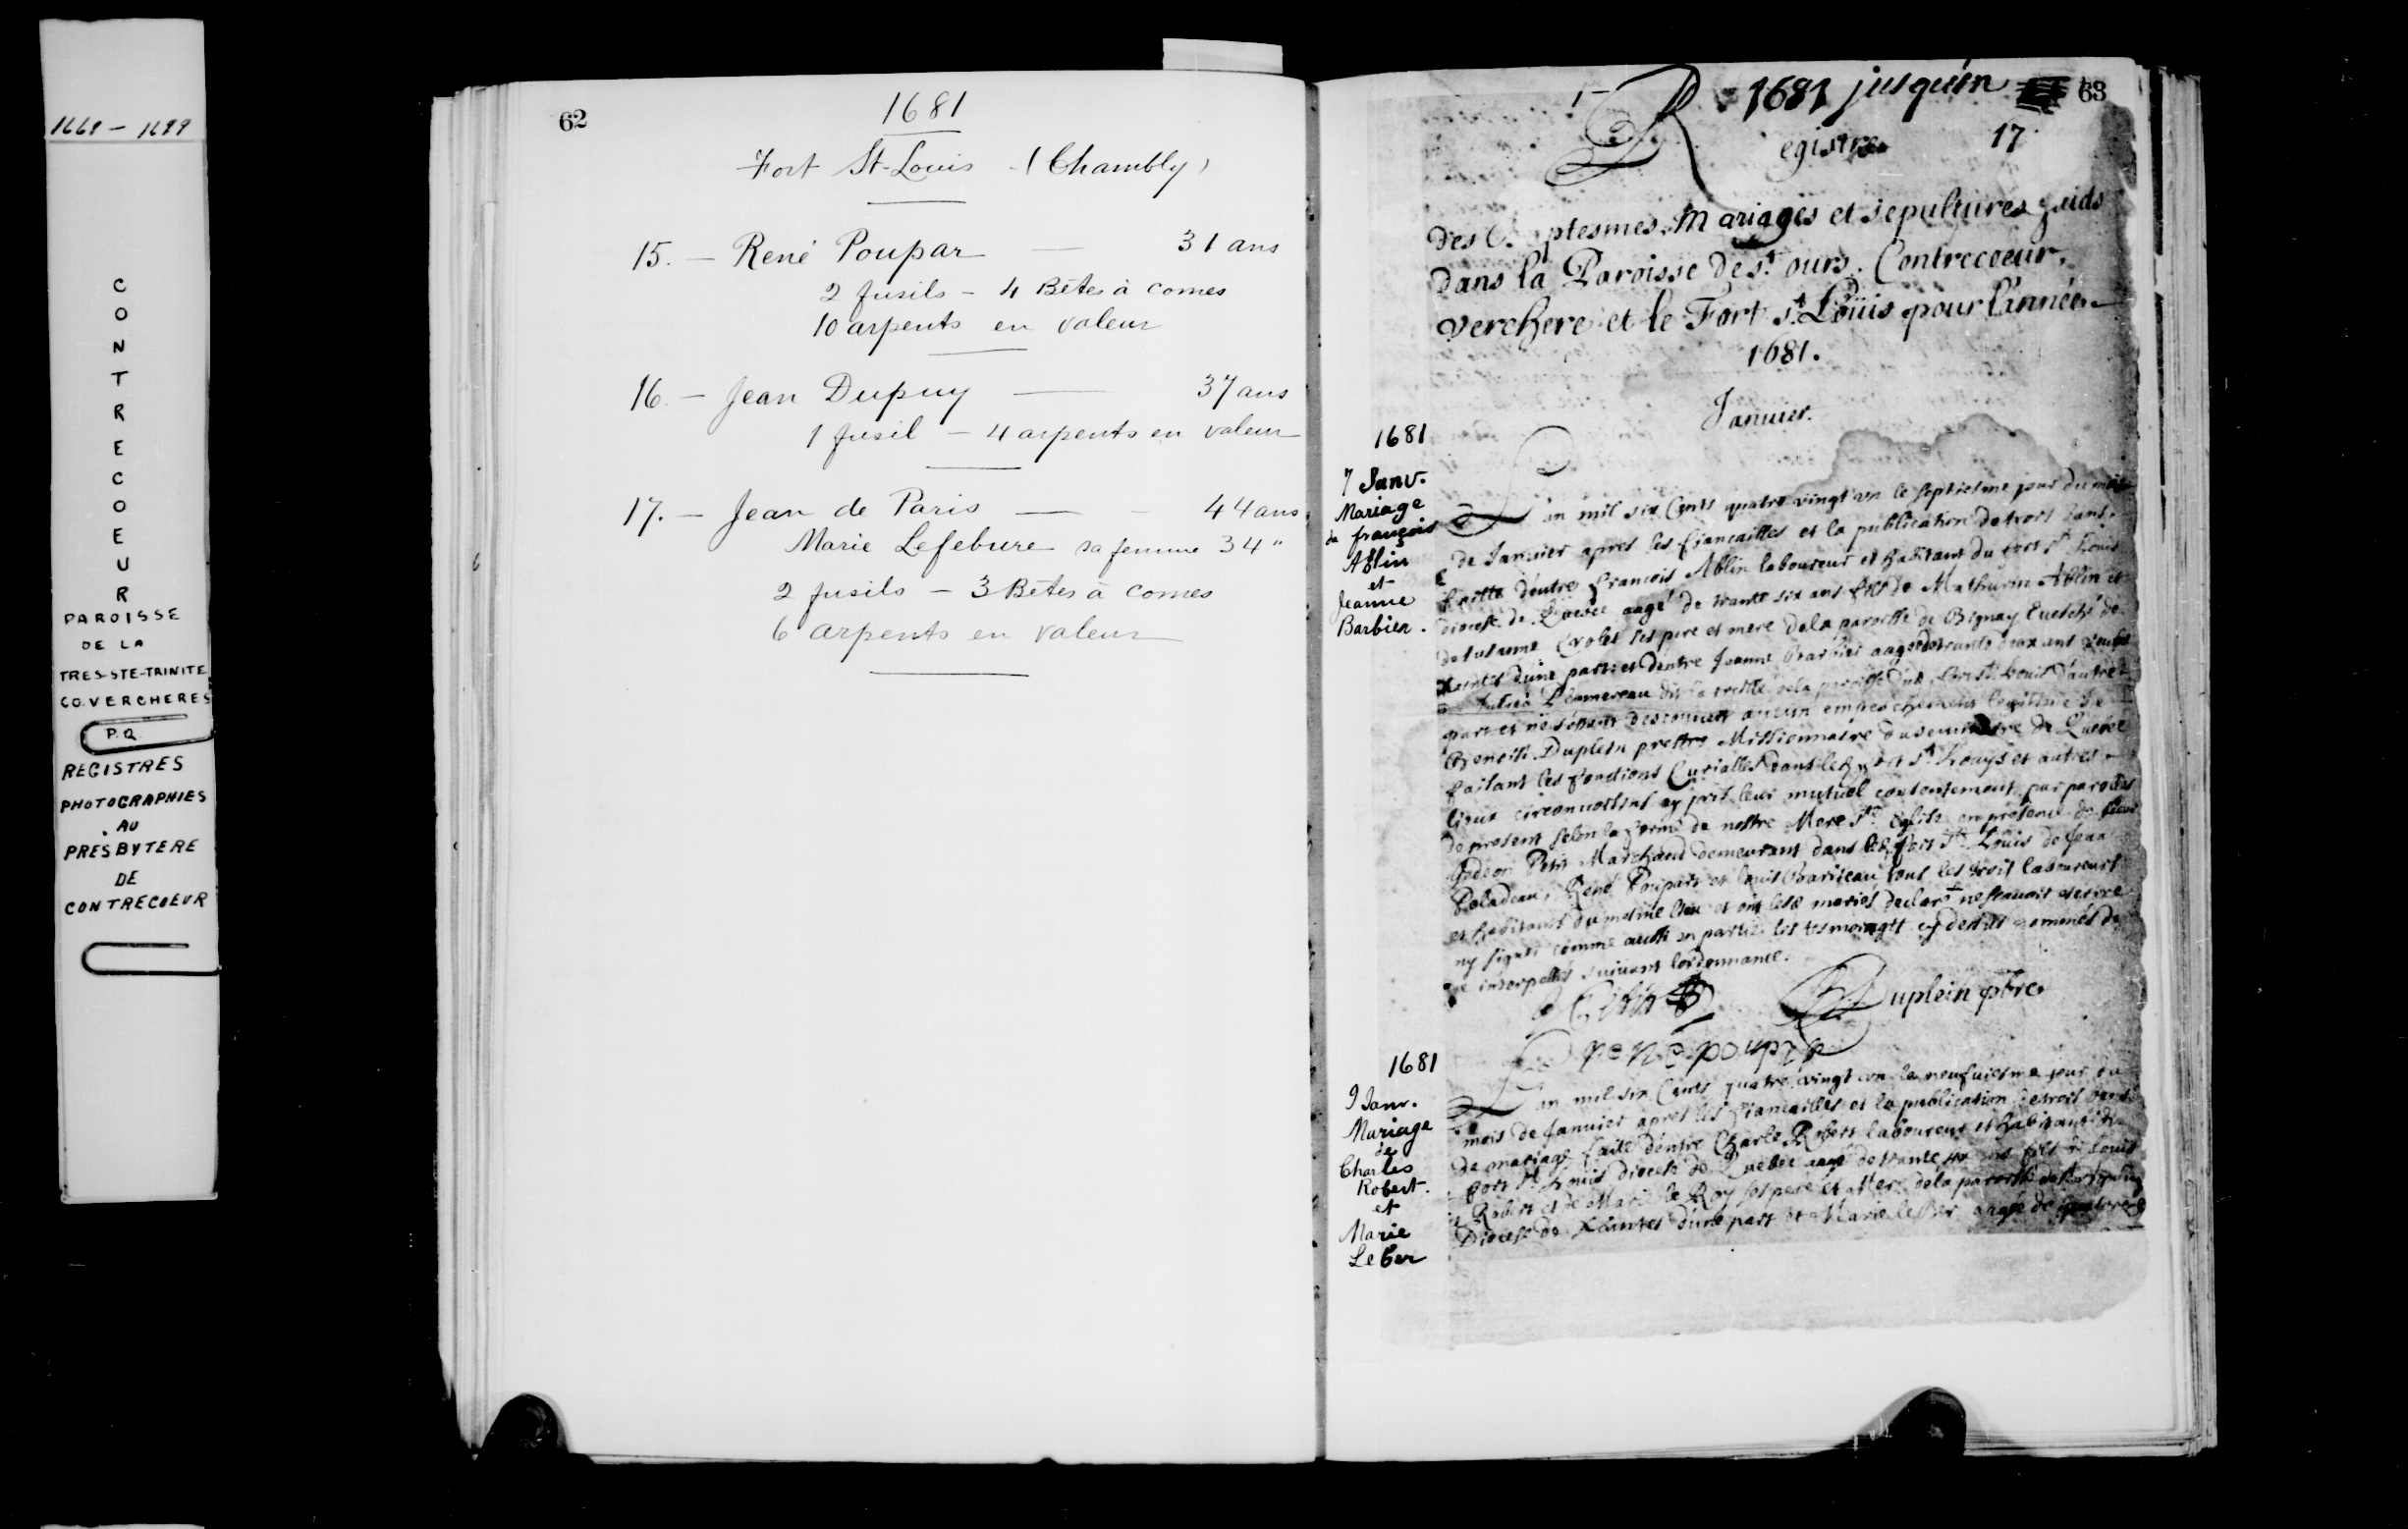 1668 - 1699
CONTRECOEUR
PAROISSE
DE LA
TRES-STE-TRINITE
CO. VERCHERES
P.Q.
REGISTRES
PHOTOGRAPHIES
AU
PRESBYTERE
DE
CONTRECOEUR
62
1681
Fort St-Louis (Chambly)
15. — René Poupar — 31 ans
2 fusils - 4 Bêtes à cornes
10 arpents en valeur
16. — Jean Dupuy — 37 ans
1 fusil - 4 arpents en valeur
17. — Jean de Paris — - 44 ans
Marie Lefebure sa femme 34 "
2 fusils - 3 Bêtes à cornes
6 arpents en valeur
1681 jusquén 63
Registre 17
des ptesmes Mariages et sepultures
dans la Paroisse de st ours. Contrecoeur.
verchere et le Fort st Louis pour l'année
1681.
Janvier.
1681
7 Janv.
Mariage
de françois
Ablin
et
Jeanne
Barbier.
Lan mil six Cents quatre vingt un le septiesme jour du mois
de Janvier apres les fiancailles et la publication de trois bans
faitte d'entre francois Ablin laboureur et habitant du fort st Louis
diocese de Quebec aagé de trante six ans fils de Mathurin Ablin et
de susanne ses pere et mere de la paroisse de Bignay Euesché de
Xaintes d'une part: et dentre Jeanne Barbier aagée de trante deux ans
la paroisse du st Louis d'autre
part et ne s'estant descouuert aucun empeschement legitime Je
Benoist Duplein prestre Missionnaire du seminaire de Quebec
faisant les fonctions Curialles dans le fort st Louys et autres
lieux circonuoisins ay pris leur mutuel consentement par paroles
de present selon la forme de nostre Mere Ste Eglise en presence de sieur
Gedeon Petit Marchand demeurant dans le fort st Louis de Jean
Poladeau, René Poupart et Louis Bariteau tous les trois laboureurs
et habitants du mesme lieu et ont les mariés declaré ne scauoir escrire
ny signer comme aussi en partie les tesmoings cy dessus nommés de
ce interpellés suiuant l'ordonnance.
Duplein pbre
rene poupar
1681
9 Janv.
Mariage
de
Charles
Robert.
et
Marie
Le Ber
Lan mil six Cents quatre vingt un le neufuiesme jour du
mois de Januier apres les fiancailles et la publication de trois bans
de mariage faite d'entre Charle Robert laboureur et habitant du
fort st Louis diocese de Quebec aagé de trante six ans fils de Louis
Robert et de Marie le Roy ses pere et Mere de la paroisse
Diocese de Xaintes d'une part et Marie le Ber aagée de